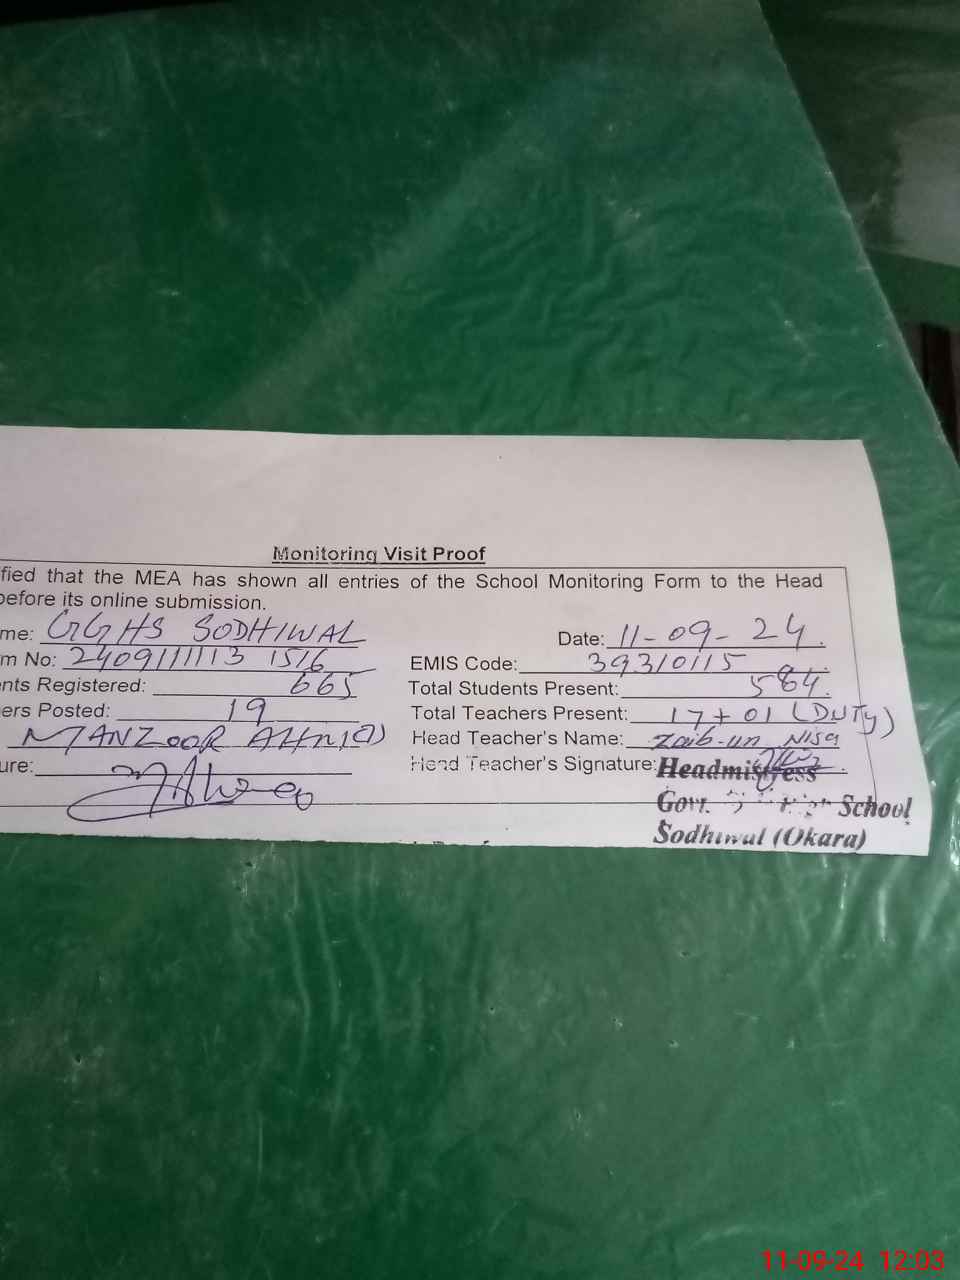 Monitoring Visit Proof
fied that the MEA has shown all entries of the School Monitoring Form to the Head
before its online submission.
me: GGHS SODHIWAL Date: 11-09-24
m No: 2409111113 1516 EMIS Code: 39310115
nts Registered: 665 Total Students Present: 584
ers Posted: 19 Total Teachers Present: 17+01 (DUTY)
MANZOOR Head Teacher's Name: Zaib-un Nisa
ure: Head Teacher's Signature:
Headmistress
Govt. High School
Sodhiwal (Okara)
11-09-24 12:03